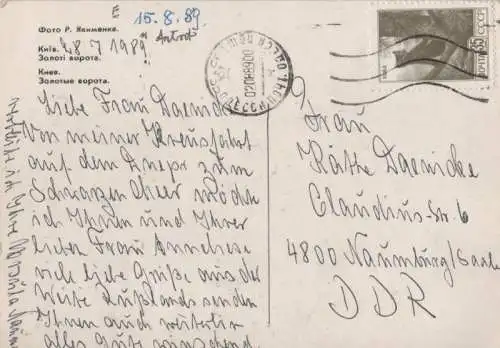 E 15.8.89
Фото Р. Якименка.
Київ. 28 7 1989
Золоті ворота.
Киев.
Золотые ворота.
Liebe Frau Daenicke
Von meiner Kreuzfahrt
auf dem Dnepr zum
Schwarzen Meer möchte
ich Ihnen und Ihrer
lieben Frau Anneliese
viele liebe Grüße aus der
Weite Rußlands senden
Ihnen auch weiterhin
alles Gute wünschend
ich Ihre Ursula
35
СССР
Frau
Käthe Daenicke
Claudius-Str. 6
4800 Naumburg/Saale
DDR